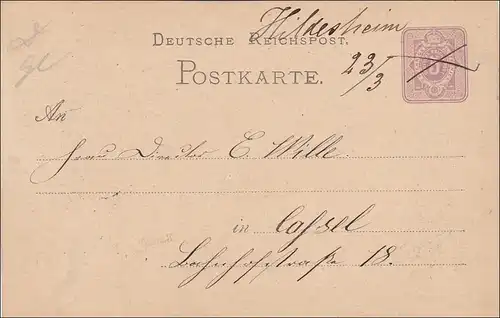 Hildesheim
DEUTSCHE REICHSPOST.
23/3
POSTKARTE.
5
An
Herrn Director E. Wille
in Cassel
Bahnhofstraße 18.